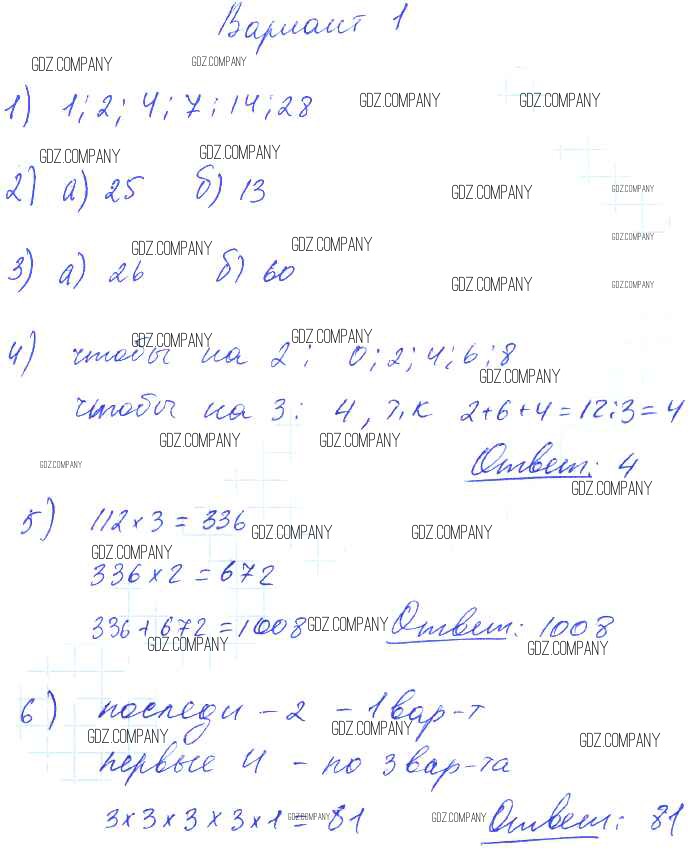 Вариант 1
GDZ.COMPANY GDZ.COMPANY
1) 1; 2; 4; 7; 14; 28 GDZ.COMPANY GDZ.COMPANY
GDZ.COMPANY GDZ.COMPANY
2) а) 25 б) 13 GDZ.COMPANY GDZ.COMPANY
GDZ.COMPANY GDZ.COMPANY GDZ.COMPANY
3) а) 26 б) 60 GDZ.COMPANY GDZ.COMPANY
GDZ.COMPANY GDZ.COMPANY
4) чтобы на 2: 0; 2; 4; 6; 8
GDZ.COMPANY
чтобы на 3: 4, т.к 2+6+4=12:3=4
GDZ.COMPANY GDZ.COMPANY
GDZ.COMPANY Ответ: 4
GDZ.COMPANY
5) 112 x 3 = 336 GDZ.COMPANY GDZ.COMPANY
GDZ.COMPANY
336 x 2 = 672
336 + 672 = 1008 GDZ.COMPANY Ответ: 1008
GDZ.COMPANY GDZ.COMPANY
6) последн - 2 - 1 вар-т
GDZ.COMPANY GDZ.COMPANY GDZ.COMPANY
первые 4 - по 3 вар-та
3 x 3 x 3 x 3 x 1 = 81 GDZ.COMPANY GDZ.COMPANY Ответ: 81